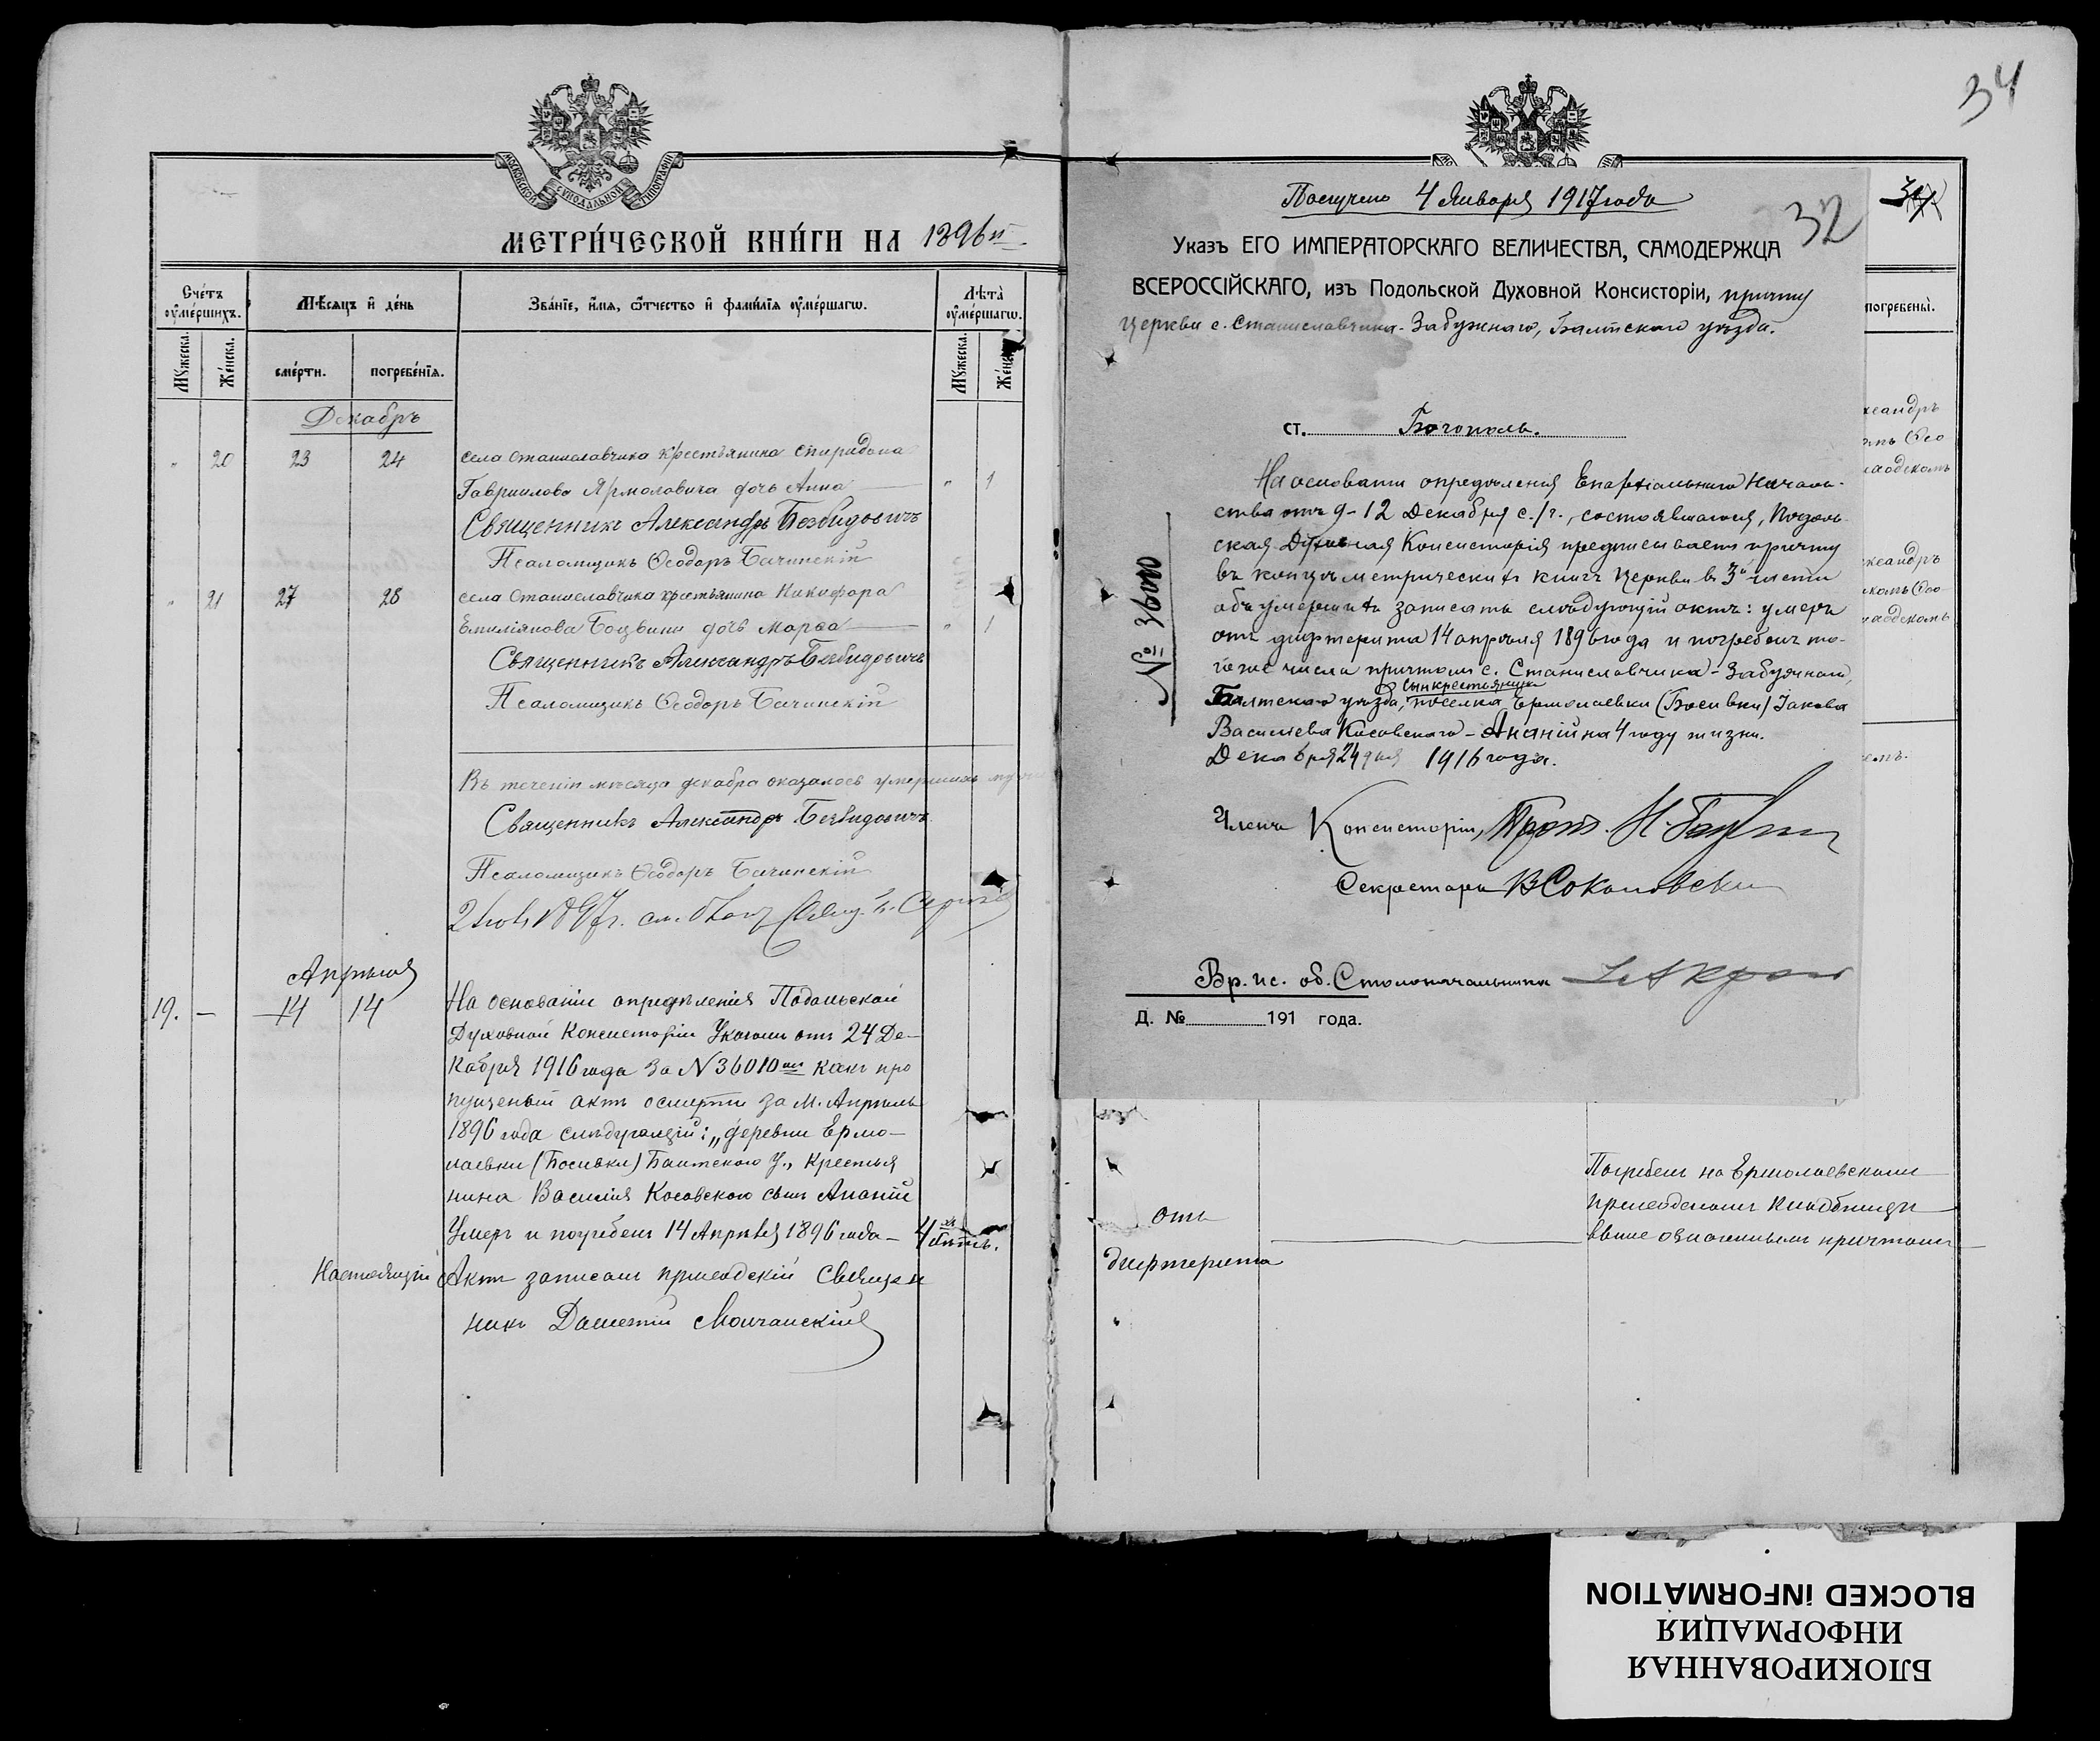 МОСКОВСКОЙ СѴНОДАЛЬНОЙ ТИПОГРАФІИ
МЕТРИ́ЧЕСКОЙ КНИ́ГИ НА 1896й
Сче́тъ ᲂу҆ме́ршихъ.
Мѣ́сяцъ и҆ де́нь
Зва́нїе, и҆́мя, ѻ҆́тчество и҆ фами́лїа ᲂу҆ме́ршагѡ.
Лѣ́та ᲂу҆ме́ршагѡ.
Мꙋ́жеска.
Же́нска.
сме́рти.
погребе́нїя.
Мꙋ́жеска.
Же́нска.
Декабрь
" 20 23 24 села Станиславчика крестьянина Спиридона
Гавриилова Ярмоловича дочь Анна " 1
Священникъ Александръ Безвидовичъ
Псаломщикъ Ѳеодоръ Бачинскій
" 21 27 28 села Станиславчика крестьянина Никифора
Емиліянова Боцвини дочь Марѳа " 1
Священникъ Александръ Безвидовичъ
Псаломщикъ Ѳеодоръ Бачинскій
Въ теченіи мѣсяца декабра оказалось умершихъ
Священникъ Александръ Безвидовичъ
Псаломщикъ Ѳеодоръ Бачинскій
1897г.
Апрѣля
19. — 14 14 На основаніи опредѣленія Подольской
Духовной Консисторіи Указомъ отъ 24 Де-
кабря 1916 года за N 36010мъ какъ про
пущеный актъ о смерти за м. Апрѣль
1896 года слѣдующій: „деревни Ермо-
лаевки (Босивки) Балтскаго у., крестья
нина Василія Косовскаго сынъ Ананій
Умеръ и погребенъ 14 Апрѣля 1896 года — 4 лѣтъ.
Настоящій Актъ записалъ приходскій Священ
никъ Молчанскій
34
Получено 4 Января 1917 года
32
Указъ ЕГО ИМПЕРАТОРСКАГО ВЕЛИЧЕСТВА, САМОДЕРЖЦА
ВСЕРОССІЙСКАГО, изъ Подольской Духовной Консисторіи, причту
церкви с. Станиславчика-Забужнаго, Балтскаго уѣзда.
ст. Богополь.
№ 36010
На основаніи опредѣленія Епархіальнаго Началь-
ства отъ 9-12 Декабря с./г., состоявшагося, Подоль-
ская Духовная Консисторія предписываетъ причту
въ концѣ метрическихъ книгъ церкви въ 3й части
объ умершихъ записать слѣдующій актъ: умеръ
отъ дифтерита 14 апрѣля 1896 года и погребенъ то-
гоже числа причтомъ с. Станиславчика-Забужнаго,
сынъ крестьянина
Балтскаго уѣзда, поселка Ермолаевки (Босивки) Іакова
Василіева Косовскаго - Ананій на 4 году жизни.
Декабря 24 дня 1916 года.
Членъ Консисторіи, Прот.
Секретарь В Соколовскій
Вр. ис. об. Столоначальника
Д. № 191 года.
погребены̀.
ксандръ
ксандръ
отъ
дифтерита
Погребенъ на Ермолаевскомъ
приходскомъ кладбищѣ
выше означеннымъ причтомъ
БЛОКИРОВАННАЯ
ИНФОРМАЦИЯ
BLOCKED iNFORMATION